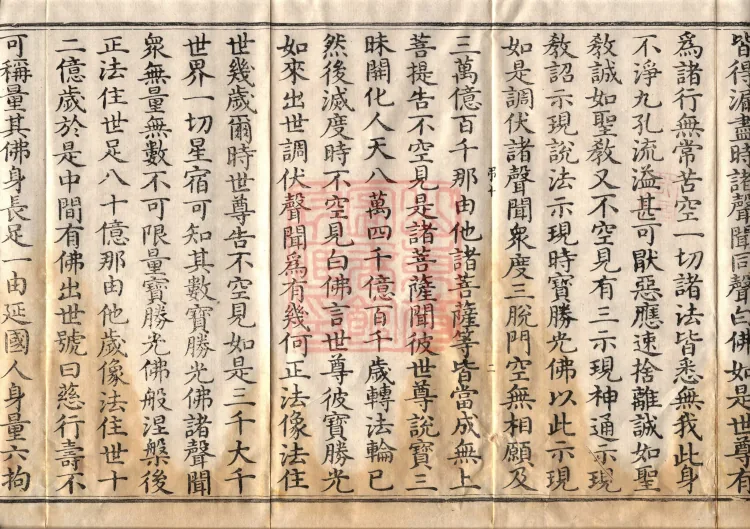 皆得漏盡時諸聲聞同聲白佛如是世尊有
為諸行無常苦空一切諸法皆悉無我此身
不淨九孔流溢甚可厭惡應速捨離誠如聖
教誠如聖教又不空見有三示現神通示現
教詔示現說法示現時寶勝光佛以此示現
如是調伏諸聲聞眾度三脫門空無相願及
三萬億百千那由他諸菩薩等皆當成無上
菩提告不空見是諸菩薩聞彼世尊說寶三
昧開化人天八萬四千億百千歲轉法輪已
然後滅度時不空見白佛言世尊彼寶勝光
如來出世調伏聲聞為有幾何正法像法住
世幾歲爾時世尊告不空見如是三千大千
世界一切星宿可知其數寶勝光佛諸聲聞
眾無量無數不可限量寶勝光佛般涅槃後
正法住世足八十億那由他歲像法住世十
二億歲於是中間有佛出世號曰慈行壽不
可稱量其佛身長足一由延國人身量六拘